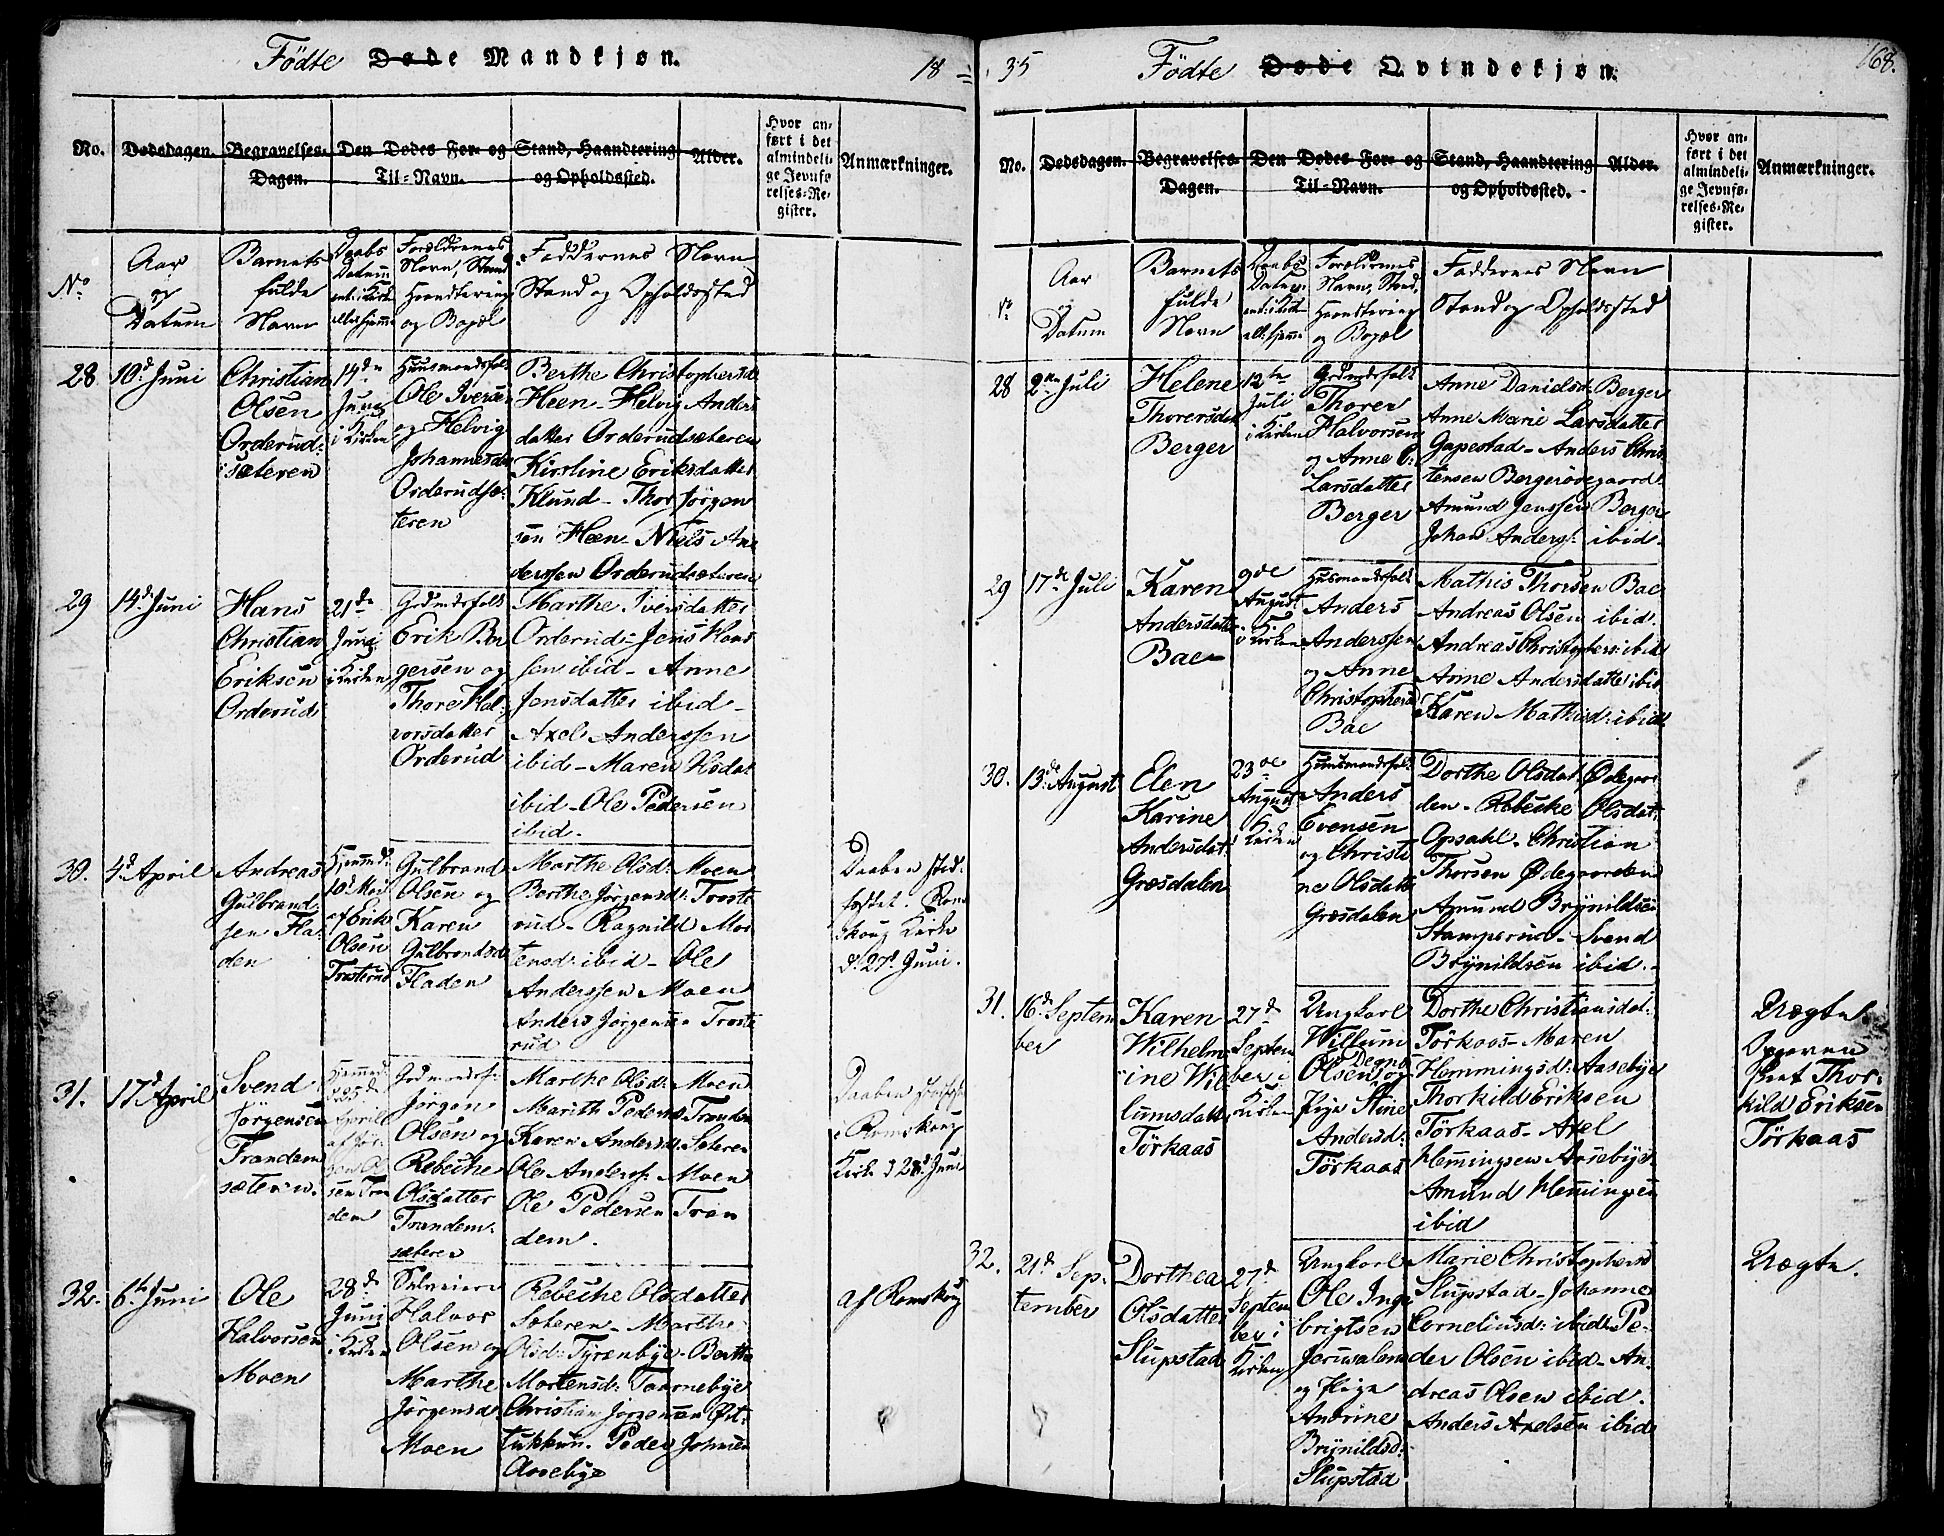 Födte Døde Mandkjøn.
18
No.
Dødsdagen.
Begravelses-
Dagen.
Den Dødes For- og
Til-Navn.
Stand, Haandtering
og Opholdssted.
Alder.
Hvor an-
ført i det
almindeli-
ge Jevnfø-
relses-Re-
gister.
Anmærkninger.
No
Aar
og
Datum
Barnets
fulde
Navn
Daabs
Datum
ent: i Kirke
eller hjemme
Forældrenes
Navn, Stand
Haandtering
og Bopæl
Faddernes Navn
Stand og Opholdssted
28
10d Juni
Christian
Olsen
Orderud-
sæteren
14de
Juni
i Kirken
Huusmandsfolk
Ole Iversen
og Helvig
Johannesda
Orderudsæ-
teren
Berthe Christophersd
Heen - Helvig Anders
datter Orderudsæteren
Kirstine Eriksdatter
Klund - Thor Jörgen
sen Heen - Niels An
derssen Orderudsæteren
29
14d Juni
Hans
Christian
Eriksen
Orderud
21de
Juni
i Kirken
Grdmdsfolk
Erik Bør
gersen og
Thore Hal-
vorsdatter
Orderud
Marthe Iversdatter
Orderud - Jens Hans
sen ibid - Anne
Jensdatter ibid -
Axel Anderssen
ibid - Maren Olsdat
ibid - Ole Pedersen
ibid -
30.
4d April
Andreas
Gulbrand
sen Fla-
den
Hjemmed:
10d Mai
af Erik
Olsen
Trosterud
Gulbrand
Olsen og
Karen
Gulbrandsd
Fladen
Marthe Olsd: Moen
Berthe Jörgensd: Troste
rud - Ragnild Mor
tensd: ibid - Ole
Anderssen Moen
Anders Jörgens: Troste
rud
Daaben stad-
fæstet i Rom
skoug Kirke
d: 27d Juni.
31.
17d April
Svend
Jörgensen
Trandem
sæteren.
Hjemmed
d 25de
April
af Jör-
gen Ol
sen Tran
dem
Grdmandsf:
Jörgen
Olsen og
Rebecke
Olsdatter
Trandem-
sæteren
Marthe Olsd: Moen
Marith Pedersd: Trandem
Karen Andersd: Sæteren
Ole Anderss: Moen
Ole Pedersen Tran
dem.
Daaben stadfæst
i Romskoug
Kirke d 28d Juni
32.
6te Juni
Ole
Halvorsen
Moen
28de
Juni
i Kirken
Selveiere
Halvor
Olsen og
Marthe
Jörgensd:
Moen
Rebecke Olsdatter
Sæteren - Marthe
Olsd: Tyrenbye - Berthe
Mortensd: Taarnebye
Christian Jörgensen Øst-
tukkun. Peder Johnsen
Aasebye
af Romskoug
35
Födte Døde Qvindekjøn.
168.
No.
Dødsdagen.
Begravelses-
Dagen.
Den Dødes For- og
Til-Navn.
Stand, Haandtering
og Opholdssted.
Alder.
Hvor an-
ført i det
almindeli-
ge Jevnfø-
relses-Re-
gister.
Anmærkninger.
No
Aar
og
Datum
Barnets
fulde
Navn
Daabs
Datum
ent: i Kirk
ell: hjemme
Forældrenes
Navn, Stand,
Haandtering
og Bopæl
Faddernes Navn
Stand og Opholdssted
28
2den Juli
Helene
Thorersdat
Berger
12te
Juli
i Kirken
Grdmdsfolk
Thorer
Halvorsen
og Anne C:
Larsdatter
Berger
Anne Danielsd: Berger
Anne Marie Larsdatter
Gapestad - Anders Chris
tensen Bergerødegaard
Amund Jenssen Berger
Johan Anderss: ibid -
29
17de Juli
Karen
Andersdatter
Bae
9de
August
i Kirken
Husmandsfolk
Anders
Anderssen
og Anne
Christophersd
Bae
Mathis Thorsen Bae
Andreas Olsen ibid.
Andreas Christophers: ibid
Anne Andersdatter ibid
Karen Mathisd: ibid
30.
13de August
Elen
Karine
Andersdat:
Græsdalen
23de
August
i Kirken
Huusmandsfolk
Anders
Evensen
og Christi
ne Olsdatt
Græsdalen
Dorthe Olsdat: Ødegaar
den - Rebecke Olsdat:
Opsahl - Christian
Thorsen Ødegaarden
Amund Brynildsen
Stamperud - Svend
Brynildsen ibid.-
31.
16de Septem
ber
Karen
Wilhelm-
ine Wil-
lumsdatt
Törkaas
27de
Septem
ber i
Kirken
Ungkarl
Willum
Olsen Degnes og
Pige Stine
Andersd:
Törkaas
Dorthe Christiansdat:
Törkaas - Maren
Hemmingsd: Aasebye
Thorkild Eriksen
Törkaas - Axel
Hemingsen Aasebye
Amund Hemingsen
ibid
Uægte.
Thor-
kild Eriksen
Törkaas
32.
21de Sep-
tember
Dorthea
Olsdatter
Slupstad
27de
Septem
ber i
Kirken
Ungkarl
Ole Inge
brigtsen
Jerusalem
og Pige
Andrine
Brynildsd:
Slupstad
Marie Christophersd
Slupstad - Johanne
Corneliusd: ibid - Pe-
der Olsen ibid - An-
dreas Olsen ibid.
Anders Axelsen ibid
Uægte.